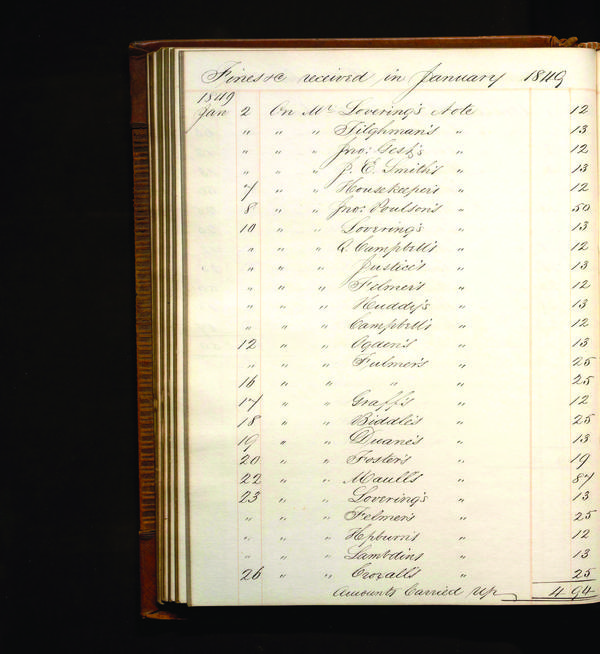 Fines &c received in January 1849
1849
Jan 2 On Mr Lovering's Note 12
" " " Tilghman's " 13
" " " Jno: Gest's " 12
" " " J. E. Smith's " 13
7 " " Housekeeper's " 12
8 " " Jno: Poulson's " 50
10 " " Lovering's " 13
" " " Q. Campbell's " 12
" " " Justice's " 13
" " " Felmer's " 12
" " " Huddy's " 13
" " " Campbell's " 12
12 " " Ogden's " 13
" " " Fulmer's " 25
16 " " " " 25
17 " " Graff's " 12
18 " " Biddle's " 25
19 " " Duane's " 13
20 " " Foster's " 19
22 " " Maull's " 87
23 " " Lovering's " 13
" " " Felmer's " 25
" " " Hepburn's " 12
" " " Lambdin's " 13
26 " " Croxall's " 25
Amounts Carried Up 4 94